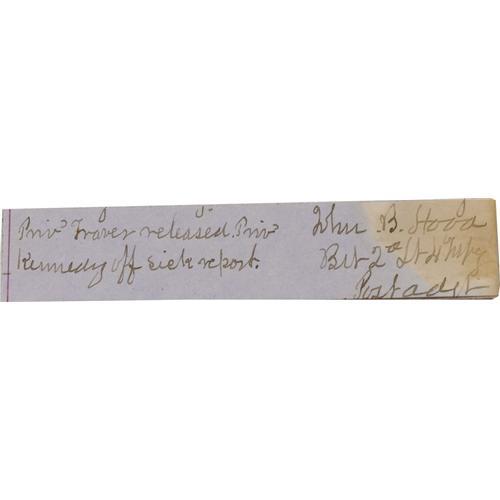 Privᵉ Traver released. Privᵉ
Kennedy off sick report.
John B. Hood
Bvt 2ᵈ Lt 4th Infy
Post adjt